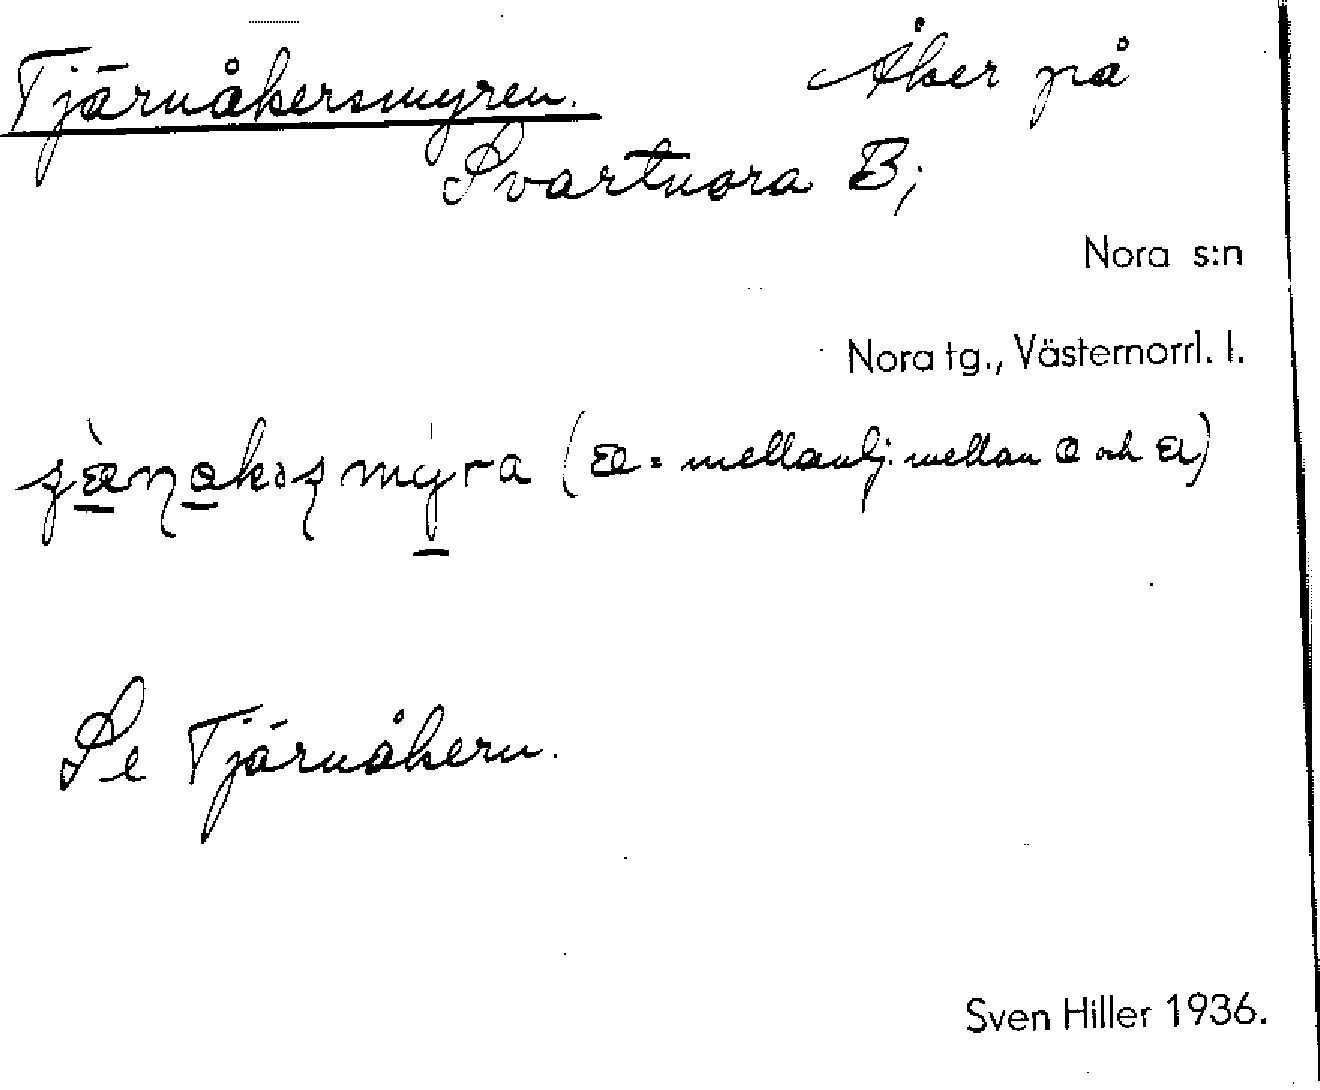 Tjärnåkersmyren. Åker på
Svartnora B;
Nora s:n
Nora tg., Västernorrl. l.
(æ = mellanlj. mellan a och æ)
Se Tjärnåkern.
Sven Hiller 1936.